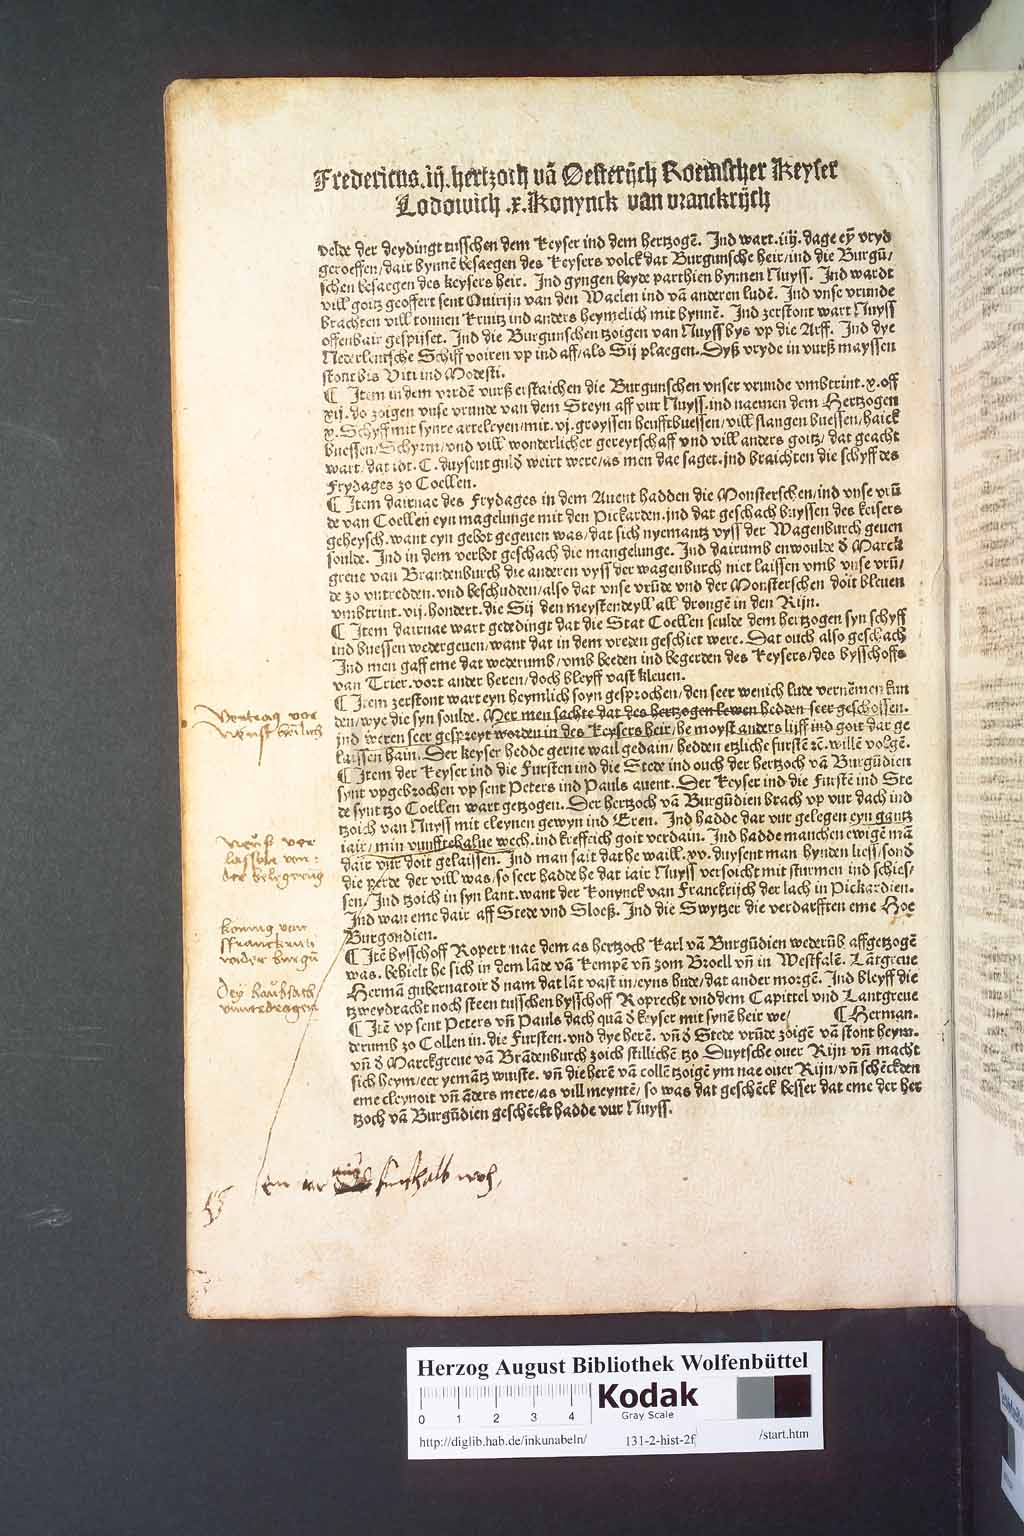 Fredericus .iij. hertzoch vã Oesterijch Roemscher Keyser
Lodowich .x. Konynck van vranckrijch
velde der deydingt tusschen dem Keyser ind dem hertzogẽ. Ind wart .iiij. dage eỹ vryd
geroeffen/dair bynnẽ besaegen des Keysers volck dat Burgunsche heir/ind die Burgũ/
schen besaegen des keysers heir. Ind gyngen beyde parthien bynnen Nuyss. Ind wardt
vill goitz geoffert sent Quirijn van den Waelen ind vã anderen ludẽ. Ind vnse vrunde
brachten vill tonnen Kruitz ind anders heymelich mit bynnẽ. Ind zerstont wart Nuyss
offenbair gespijset. Ind die Burgunschen tzoigen van Nuyss bys vp die Arff. Ind dye
Nederlentsche Schiff voiren vp ind aff/als Sij plaegen. Dyß vryde in vurß mayssen
stont bis Viti ind Modesti.
¶ Item in dem vredẽ vurß erstaichen die Burgunschen vnser vrunde vmbtrint .x. off
xij. do zoigen vnse vrunde van dem Steyn aff vur Nuyss. ind naemen dem Hertzogen
v. Schyff mit synre artelryen/mit .vj. groyssen heufftbuessen/vill slangen buessen/haick
buessen/Schyrm/vnd vill wonderlicher gereytschaff vnd vill anders goitz/dat geacht
wart/dat idt .C. duysent guldẽ weirt were/as men dae saget. ind braichten die schyff des
Frydages zo Coellen.
¶ Item dairnae des Frydages in dem Auent hadden die Monsterschen/ind vnse vrũ
de van Coellen eyn magelunge mit den Pickarden. ind dat geschach buyssen des keisers
geheysch. want eyn gebot gegeuen was/dat sich nyemantz vyss der Wagenburch geuen
soulde. Ind in dem verbot geschach die mangelunge. Ind dairumb enwoulde d̃ Marck
greue van Brandenburch die anderen vyss der wagenburch niet laissen vmb vnse vrũ/
de zo vntredden. vnd beschudden/also dat vnse vrũde vnd der Monsterschen doit bleuen
vmbtrint .vij. hondert. die Sij den meystendeyll all drongẽ in den Rijn.
¶ Item dairnae wart gededingt dat die Stat Coellen seulde dem hertzogen syn schyff
ind buessen wedergeuen/want dat in dem vreden geschiet were. Dat ouch also geschach
Ind men gaff eme dat wederumb/vmb beeden ind begerden des Keysers/des bysschoffs
van Trier. vort ander heren/doch bleyff vast kleuen.
¶ Item zerstont wart eyn heymlich soyn gesprochen/den seer wenich lude vernẽmen kun
den/wye die syn soulde. Mer men sachte dat des hertzogen lewen hedden seer geschossen.
ind weren seer gespreyt worden in des Keysers heir/he moyst anders lijff ind goit dar ge
laissen hain. Der keyser hedde gerne wail gedain/hedden etzliche furstẽ zc̃. willẽ volgẽ.
¶ Item der Keyser ind die Fursten ind die Stede ind ouch der hertzoch vã Burgũdien
synt vpgebrochen vp sent Peters ind Pauls auent. Der Keyser ind die Furstẽ ind Ste
de synt tzo Coellen wart getzogen. Der hertzoch vã Burgũdien brach vp vur dach ind
tzoich van Nuyss mit cleynen gewyn ind Eren. Ind hadde dar vur gelegen eyn gantz
iair/min vunfftehalue wech. ind kreffeich goit verdain. Ind hadde manchen ewigẽ mã
dair vur doit gelaissen. Ind man sait dat he waill .xv. duysent man hynden liess/sond̃
die perde der vill was/so seer hadde he dat iair Nuyss versoicht mit sturmen ind schies/
sen. Ind tzoich in syn lant. want der Konynck van Franckrijch der lach in Pickardien.
Ind wan eme dair aff Stede vnd Sloeß. Ind die Swytzer die verdarfften eme Hoe
Burgondien.
¶ Itẽ bysschoff Ropert nae dem as hertzoch Karl vã Burgũdien wederũb affgetzogẽ
was. behielt he sich in dem lãde vã Kempẽ vñ zom Broell vñ in Westfalẽ. Lãtgreue
Hermã gubernatoir d̃ nam dat lãt vast in/eyns hude/dat ander morgẽ. Ind bleyff die
tzweydracht noch steen tusschen bysschoff Roprecht vnd dem Capittel vnd Lantgreue
¶ Itẽ vp sent Peters vñ Pauls dach quã d̃ keyser mit synẽ heir we/ ¶ Herman.
derumb zo Collen in. die Fursten. vnd dye herẽ. vñ d̃ Stede vrũde zoigẽ vã stont heym.
vñ d̃ Marckgreue vã Brãdenburch zoich stillichẽ tzo Duytsche ouer Rijn vñ macht
sich heym/eer yemãtz wuiste. vñ die herẽ vã collẽ tzoigẽ ym nae ouer Rijn/vñ schẽckden
eme cleynoit vñ ãders mere/as vill meyntẽ/so was dat geschẽck besser dat eme der her
tzoch vã Burgũdien geschẽckt hadde vur Nuyss.
Vertrag vor
Neuß
Neuß ver
lassen von
der belegerug
König von
Franckrich
vnder burgũ
ein iar min funfhalb woch.
Herzog August Bibliothek Wolfenbüttel
0 1 2 3 4
Kodak
Gray Scale
http://diglib.hab.de/inkunabeln/ 131-2-hist-2f /start.htm